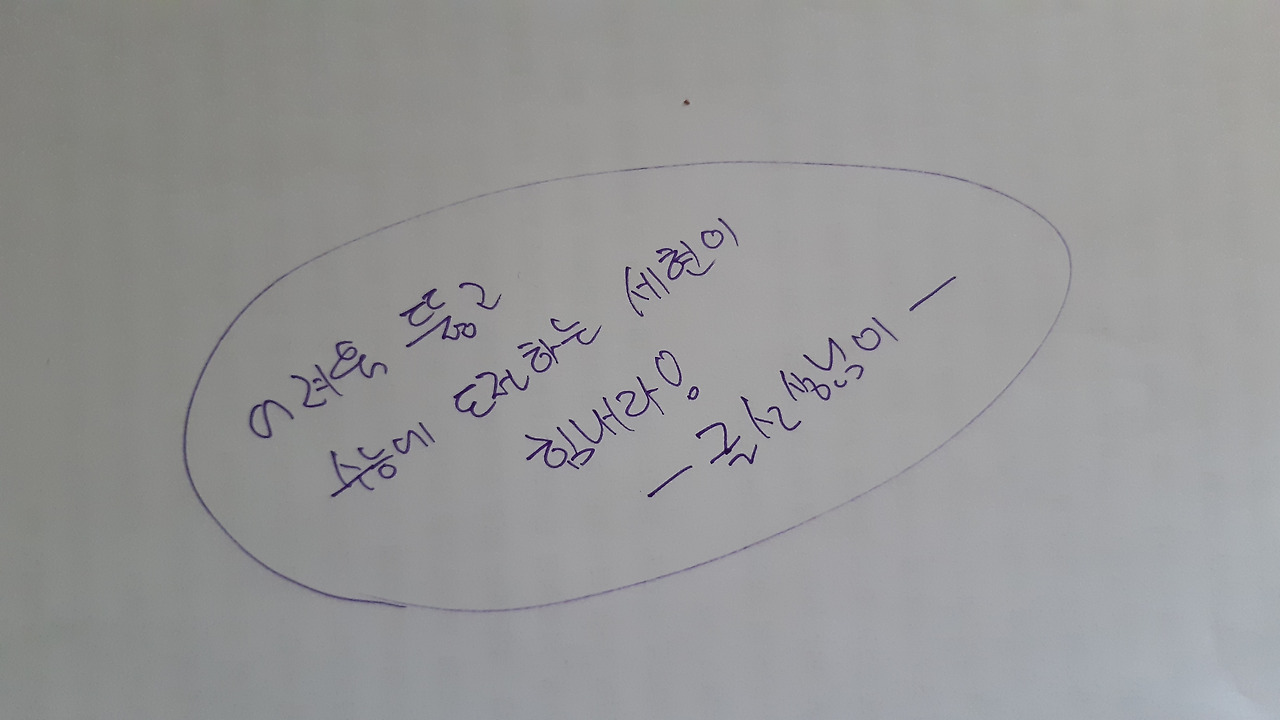 어려움 뚫고
수능에 도전하는 세현이
힘내라!
— 선생님이 —